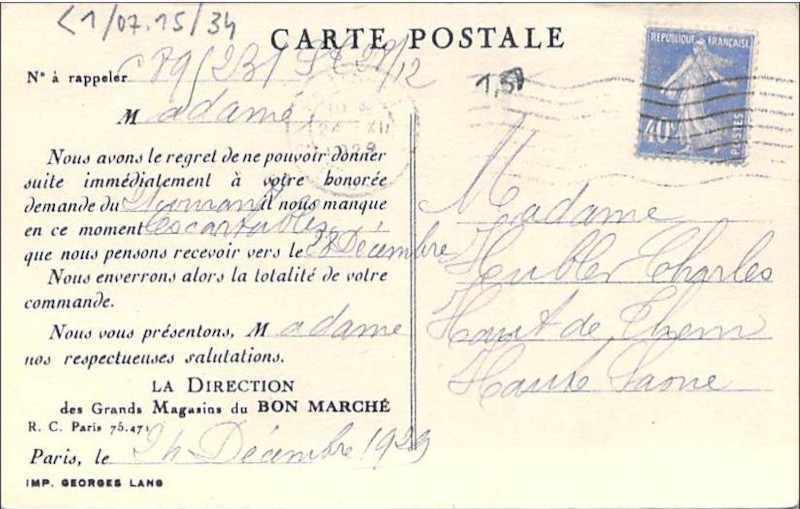 <1/07.15/34
CARTE POSTALE
REPUBLIQUE FRANÇAISE
40c
POSTES
1,50
N° à rappeler C 79/231 28/12
M adame,
24 XII
1929
Nous avons le regret de ne pouvoir donner
suite immédiatement à votre honorée
demande du il nous manque
en ce moment les cartables
que nous pensons recevoir vers le 28 Décembre
Nous enverrons alors la totalité de votre
commande.
Nous vous présentons, M adame
nos respectueuses salutations.
LA DIRECTION
des Grands Magasins du BON MARCHÉ
R. C. Paris 75.471
Paris, le 24 Décembre 1929
IMP. GEORGES LANG
Madame
Hubler Charles
Haut de Them
Haute Saone